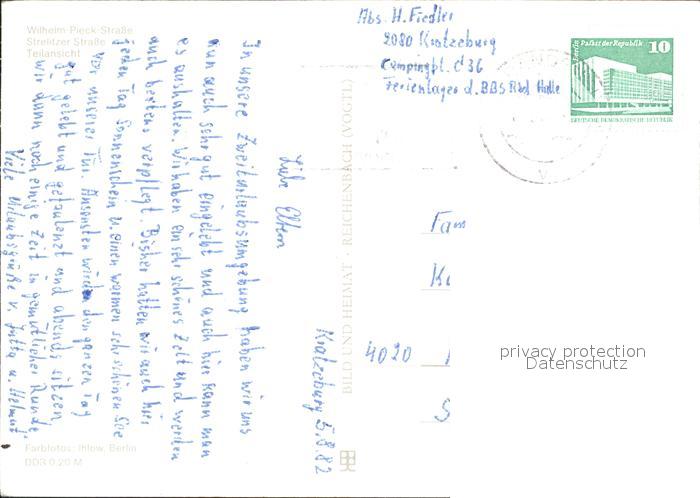 Wilhelm-Pieck-Straße
Strelitzer Straße
Teilansicht
Abs. H. Fiedler
2080 Kratzeburg
Campingpl. C 36
Ferienlager d. BBS Rbd Halle
Berlin Palast der Republik 10
DEUTSCHE DEMOKRATISCHE REPUBLIK
Kratzeburg 5.8.82
Liebe Eltern
In unsere Zweiturlaubsumgebung haben wir uns
nun auch sehr gut eingelebt und auch hier kann man
es aushalten. Wir haben ein sehr schönes Zelt und werden
auch bestens verpflegt. Bisher hatten wir auch hier
jeden Tag Sonnenschein u. einen warmen sehr schönen See
vor unserer Tür. Ansonsten wird den ganzen Tag
gut gelebt und gefaulenzt und abends sitzen
wir dann noch einige Zeit in gemütlicher Runde.
Viele Urlaubsgrüße v. Jutta u. Helmut.
BILD UND HEIMAT · REICHENBACH (VOGTL)
Fam
K
4020
S
privacy protection
Datenschutz
Farbfotos: Ihlow, Berlin
DDR 0,20 M